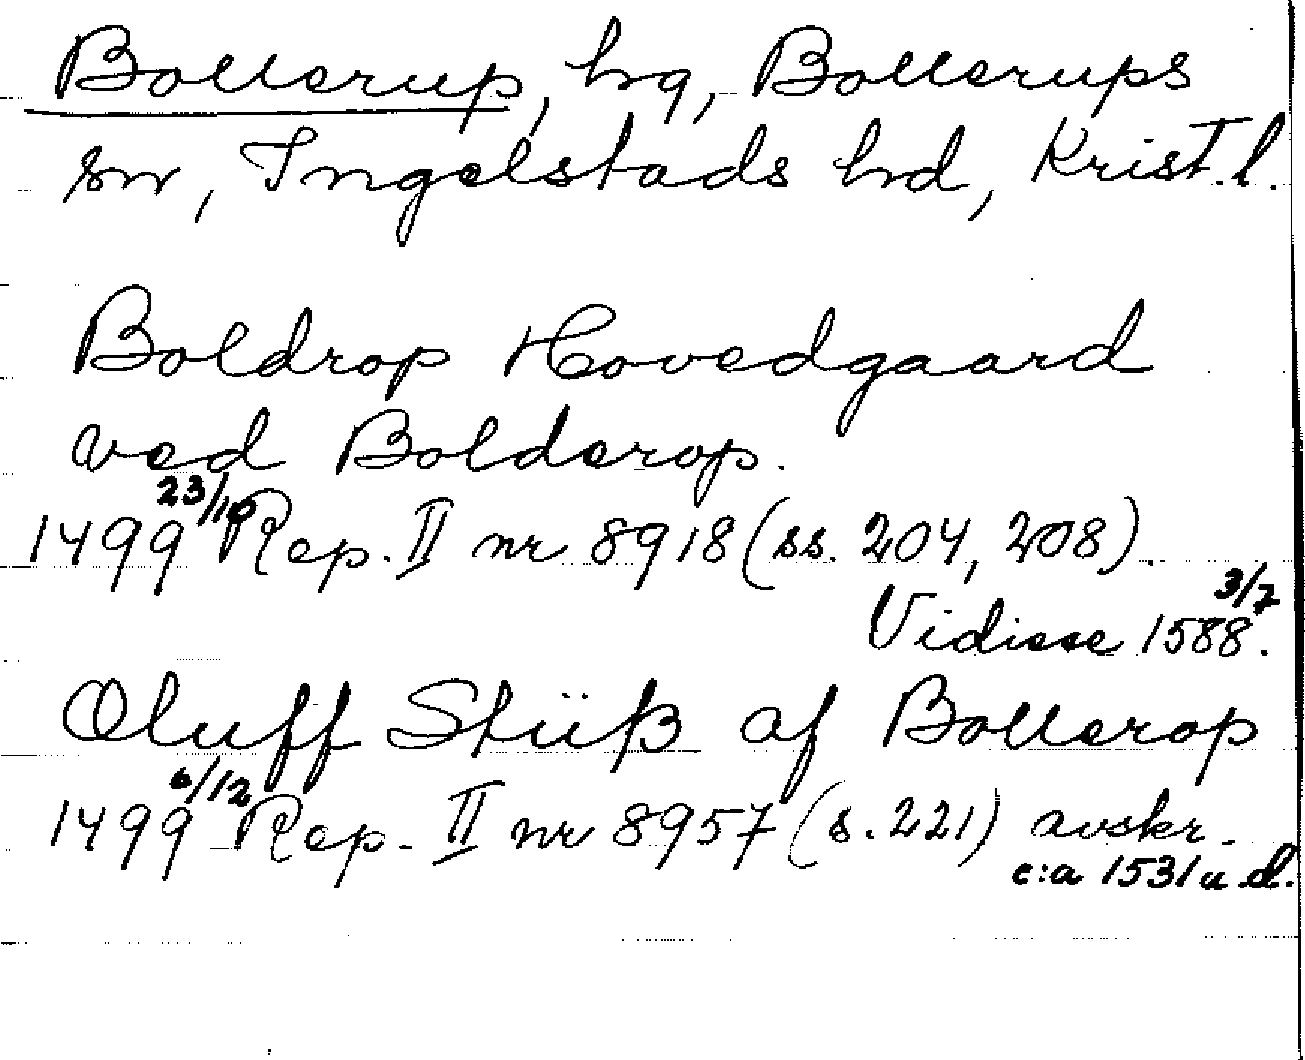 Bollerup, hg, Bollerups
sn, Ingelstads hd, Krist. l.
Boldrop Hovedgaard
ved Bolderop.
1499 23/10 Rep. II nr 8918 (ss. 204, 208)
Vidisse 1588 3/7.
Oluff Stüß af Bollerop
1499 6/12 Rep. II nr 8957 (s. 221) avskr.
c:a 1531 u d.